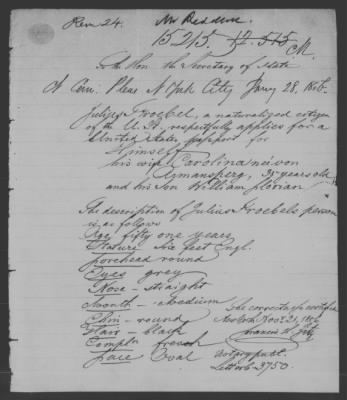 Rem 24. Mr
15215. 12.515 M.
To the Hon. the Secretary of State
N York City Jany 28. 1856.
Julius Froebel, a naturalized citizen
of the U.S. respectfully applies for a
United States passport for
Himself
his wife Carolina née von
Armansperg, 35 years old
and his Son William Florian
The description of Julius Froebels person
is as follows
Age fifty one years
Stature Six feet Engl.
forehead round
Eyes grey
Nose - straight
Mouth - medium
Chin - round
Hair - black
Compln fresh
face Oval
The correctness certified
New York
Francis
Notary publ.
3750.